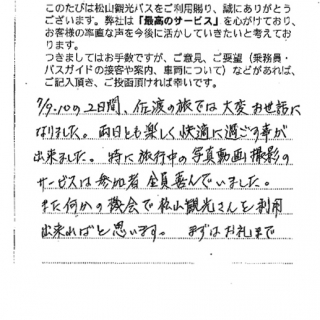 このたびは松山観光バスをご利用賜り、誠にありがとう
ございます。弊社は「最高のサービス」を心がけており、
お客様の率直な声を今後に活かしていきたいと考えてお
ります。
つきましてはお手数ですが、ご意見、ご要望（乗務員・
バスガイドの接客や案内、車両について）などがあれば、
ご記入頂き、ご投函頂ければ幸いです。
7/9.10の2日間、佐渡の旅では大変お世話に
なりました。両日とも楽しく快適に過ごす事が
出来ました。特に旅行中の写真動画撮影の
サービスは参加者全員喜んでいました。
また何かの機会で松山観光さんを利用
出来ればと思います。 まずはお礼まで